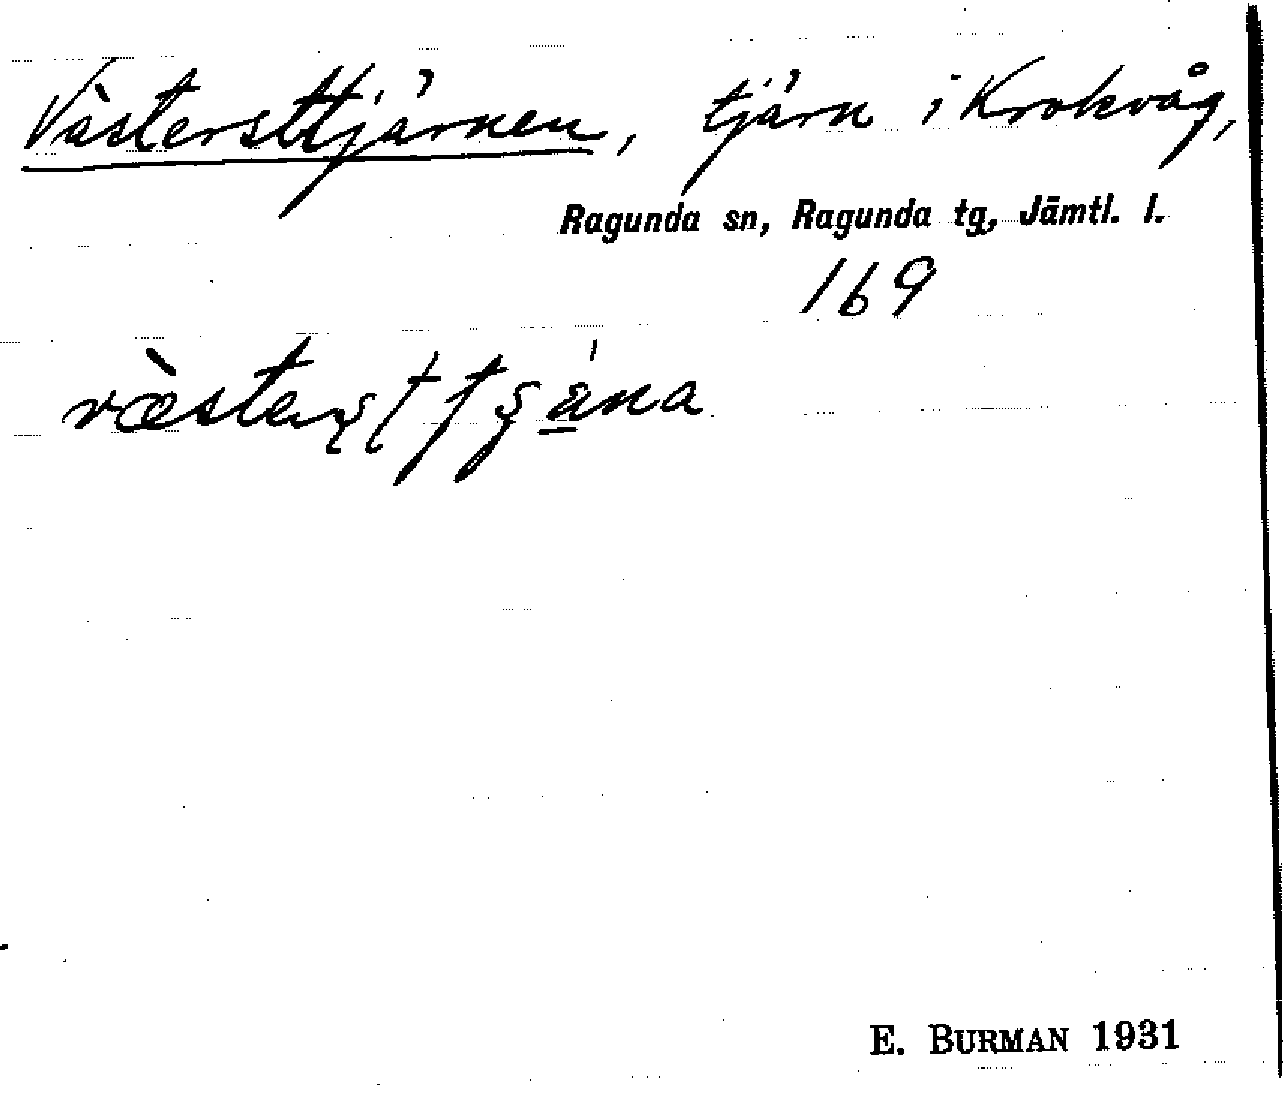 Västersttjärnen, tjärn i Krokvåg,
Ragunda sn, Ragunda tg, Jämtl. l.
169
E. BURMAN 1931